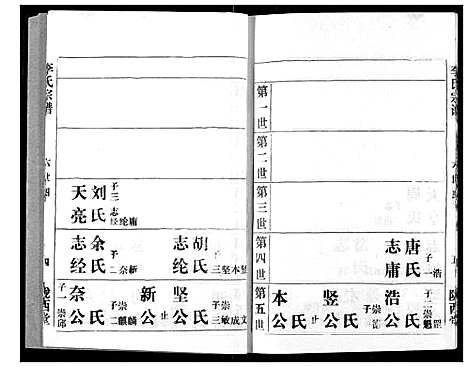 李氏宗谱
第一世
第二世
第三世
第四世
第五世
唐氏 子一 浩
志庸
浩公 氏 子二 崇
竖公 氏 子 崇
本公 止
陇西堂
李氏宗谱
胡氏 子三 坚本竖
志纶
余氏 子二 奈新
志经
刘氏 子三 志经纶庸
天亮
坚公 氏 子三 崇敏成文
新公 止
氏 子二 崇麒麟
奈公
子一 崇邱
四
陇西堂